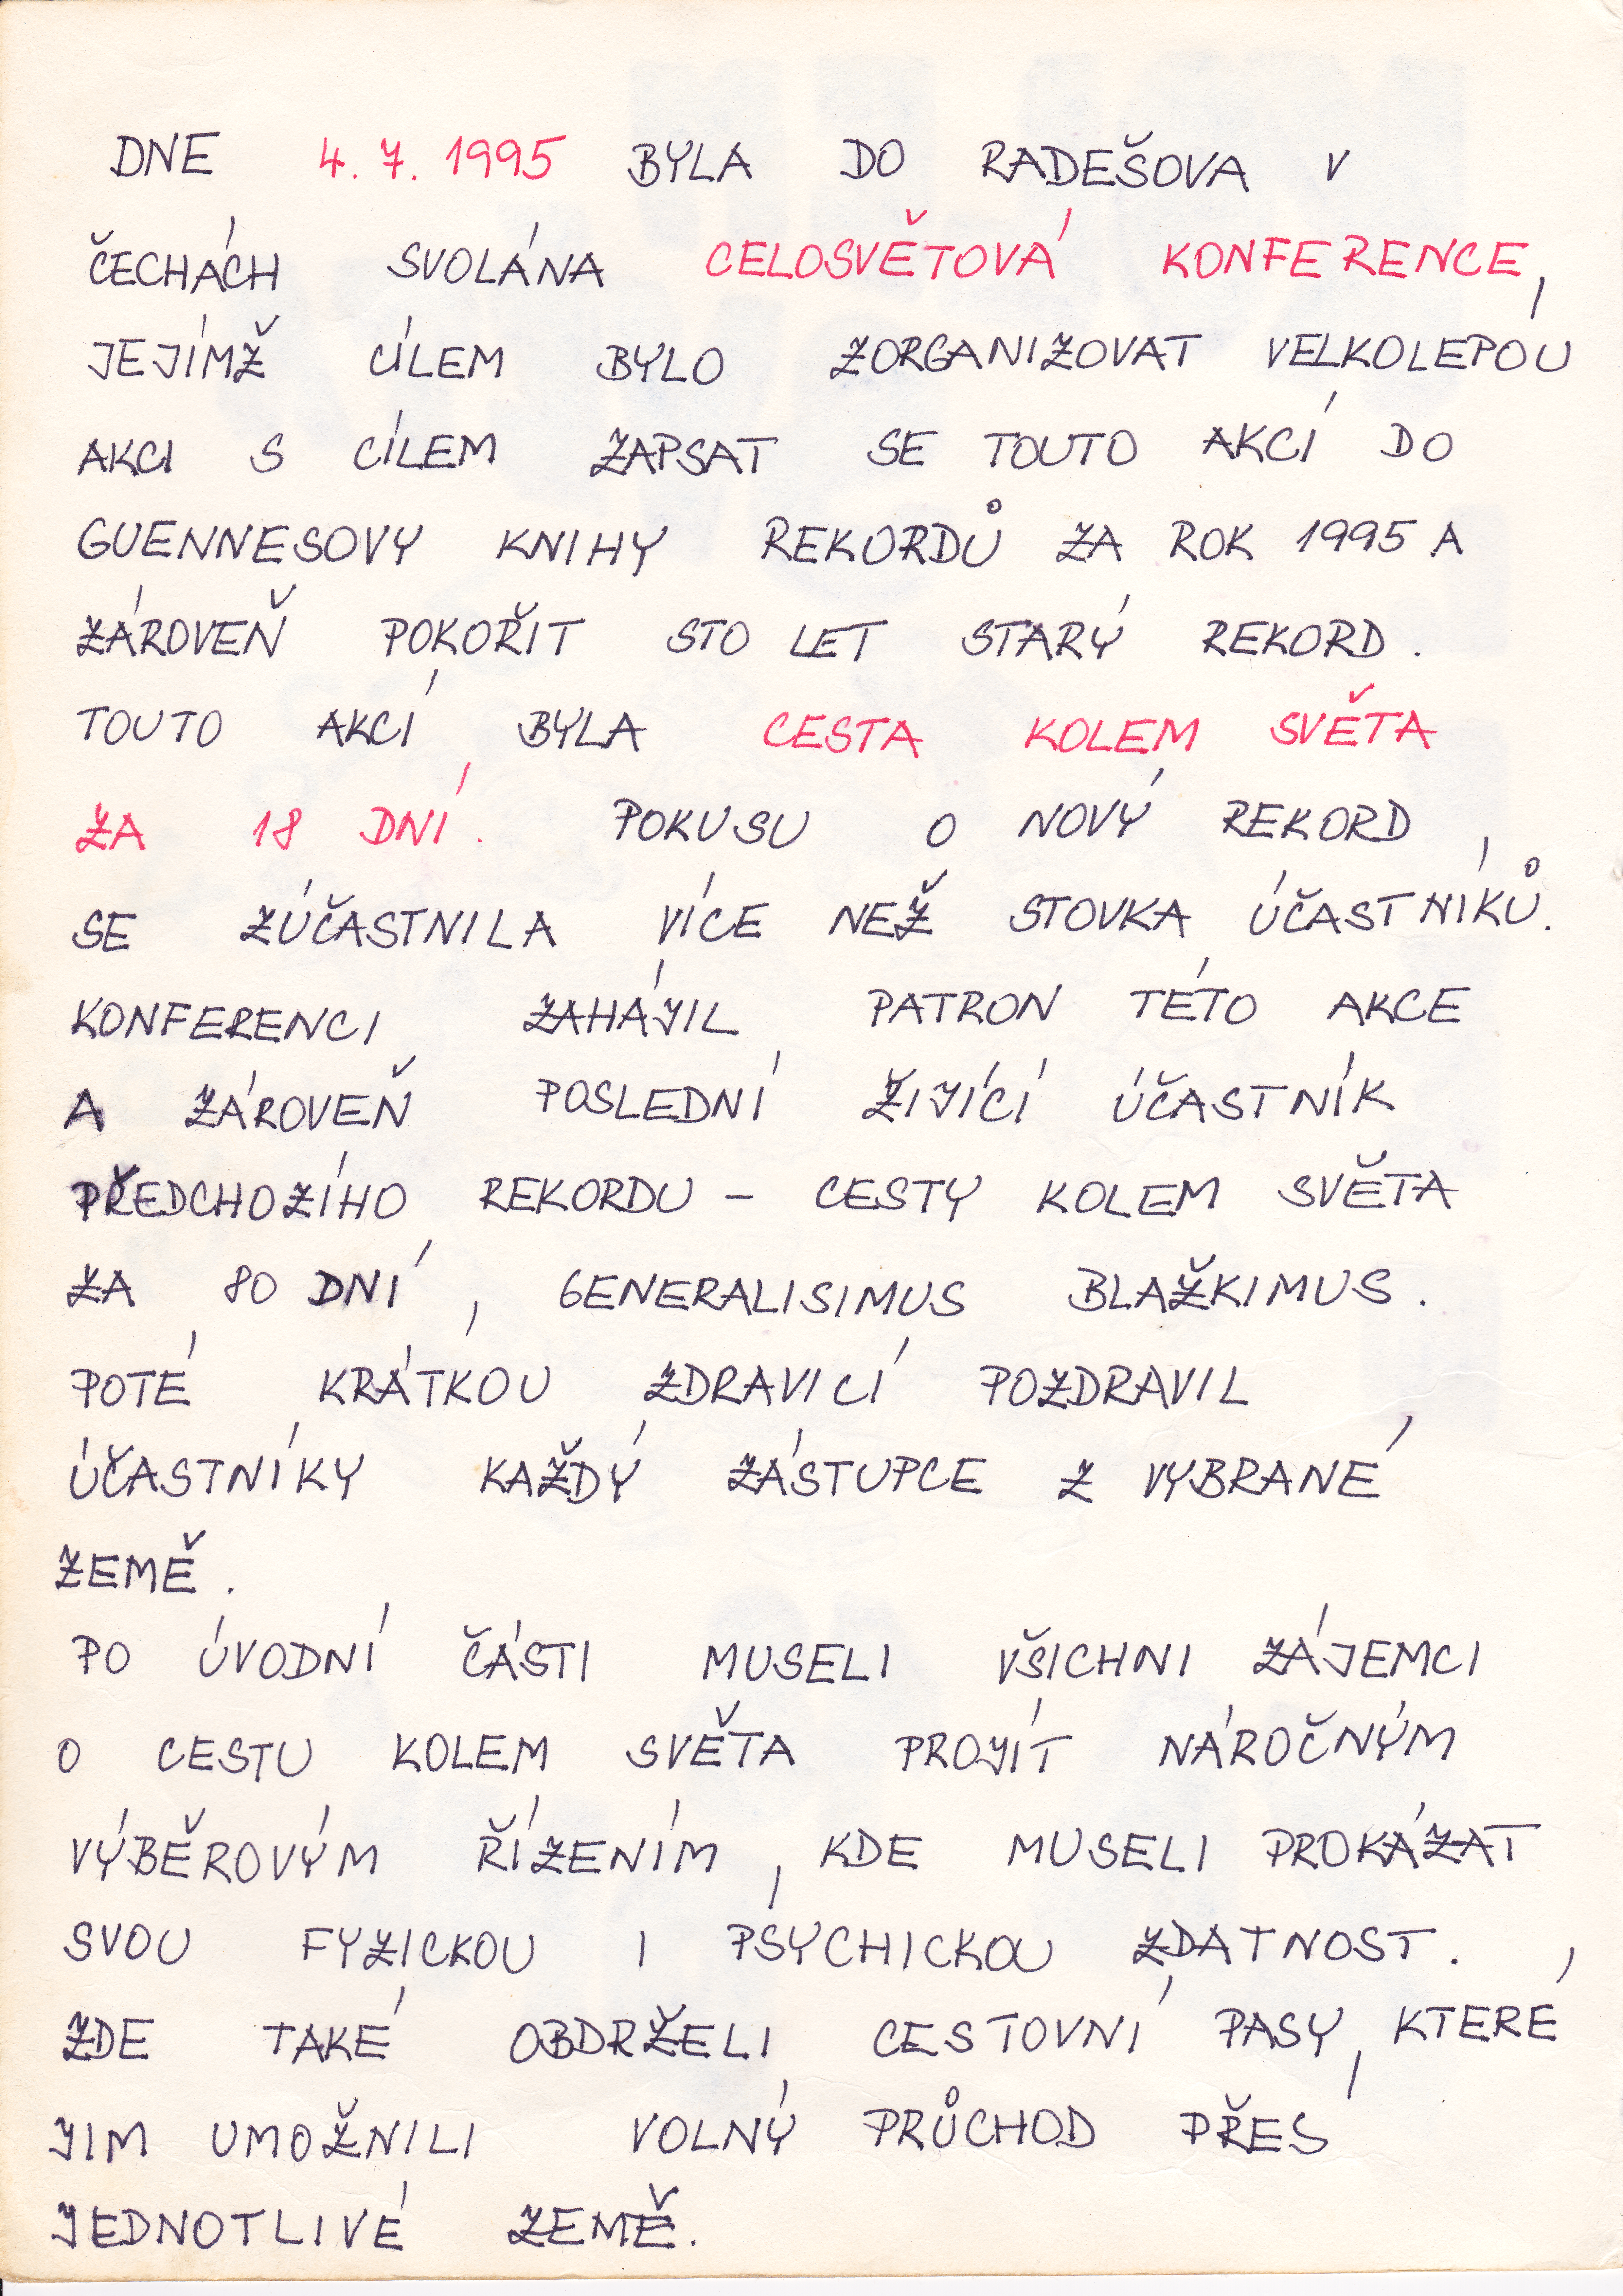 DNE 4. 7. 1995 BYLA DO RADEŠOVA V
ČECHÁCH SVOLÁNA CELOSVĚTOVÁ KONFERENCE,
JEJÍMŽ CÍLEM BYLO ZORGANIZOVAT VELKOLEPOU
AKCI S CÍLEM ZAPSAT SE TOUTO AKCÍ DO
GUENNESOVY KNIHY REKORDŮ ZA ROK 1995 A
ZÁROVEŇ POKOŘIT STO LET STARÝ REKORD.
TOUTO AKCÍ BYLA CESTA KOLEM SVĚTA
ZA 18 DNÍ. POKUSU O NOVÝ REKORD,
SE ZÚČASTNILA VÍCE NEŽ STOVKA ÚČASTNÍKŮ.
KONFERENCI ZAHÁJIL PATRON TÉTO AKCE
A ZÁROVEŇ POSLEDNÍ ŽIJÍCÍ ÚČASTNÍK
PŘEDCHOZÍHO REKORDU – CESTY KOLEM SVĚTA
ZA 80 DNÍ, GENERALISIMUS BLAŽKIMUS.
POTÉ KRÁTKOU ZDRAVICÍ POZDRAVIL
ÚČASTNÍKY KAŽDÝ ZÁSTUPCE Z VYBRANÉ
ZEMĚ.
PO ÚVODNÍ ČÁSTI MUSELI VŠICHNI ZÁJEMCI
O CESTU KOLEM SVĚTA PROJÍT NÁROČNÝM
VÝBĚROVÝM ŘÍZENÍM, KDE MUSELI PROKÁZAT
SVOU FYZICKOU I PSYCHICKOU ZDATNOST.
ZDE TAKÉ OBDRŽELI CESTOVNÍ PASY, KTERÉ
JIM UMOŽNILI VOLNÝ PRŮCHOD PŘES
JEDNOTLIVÉ ZEMĚ.